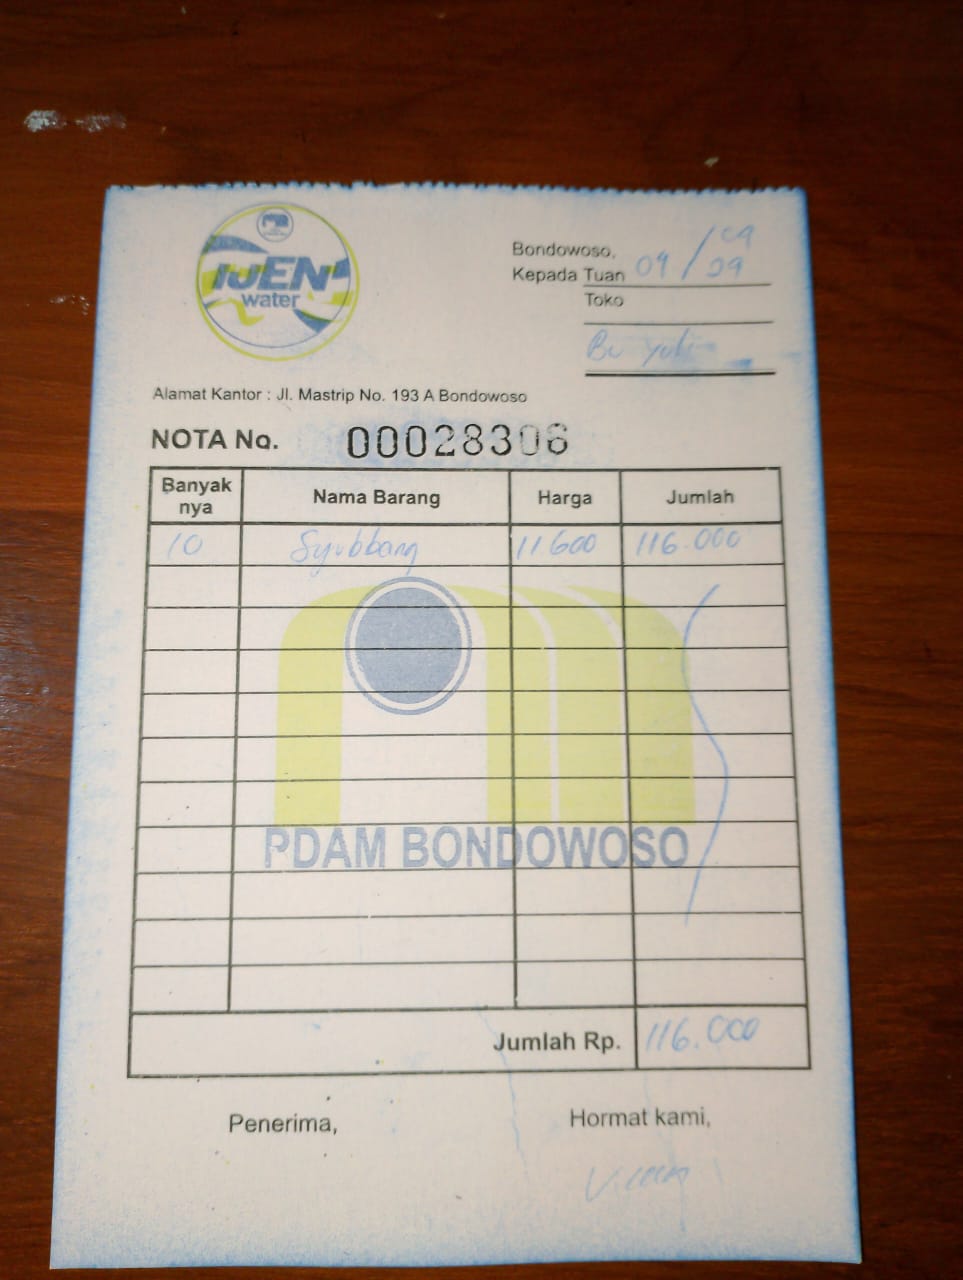 IJEN
water
Bondowoso,
09/09
Kepada Tuan
Toko
Bu
Alamat Kantor : Jl. Mastrip No. 193 A Bondowoso
NOTA No. 00028306
Banyak nya Nama Barang Harga Jumlah
10 Syubbang 11.600 116.000
PDAM BONDOWOSO
Jumlah Rp. 116.000
Penerima, Hormat kami,